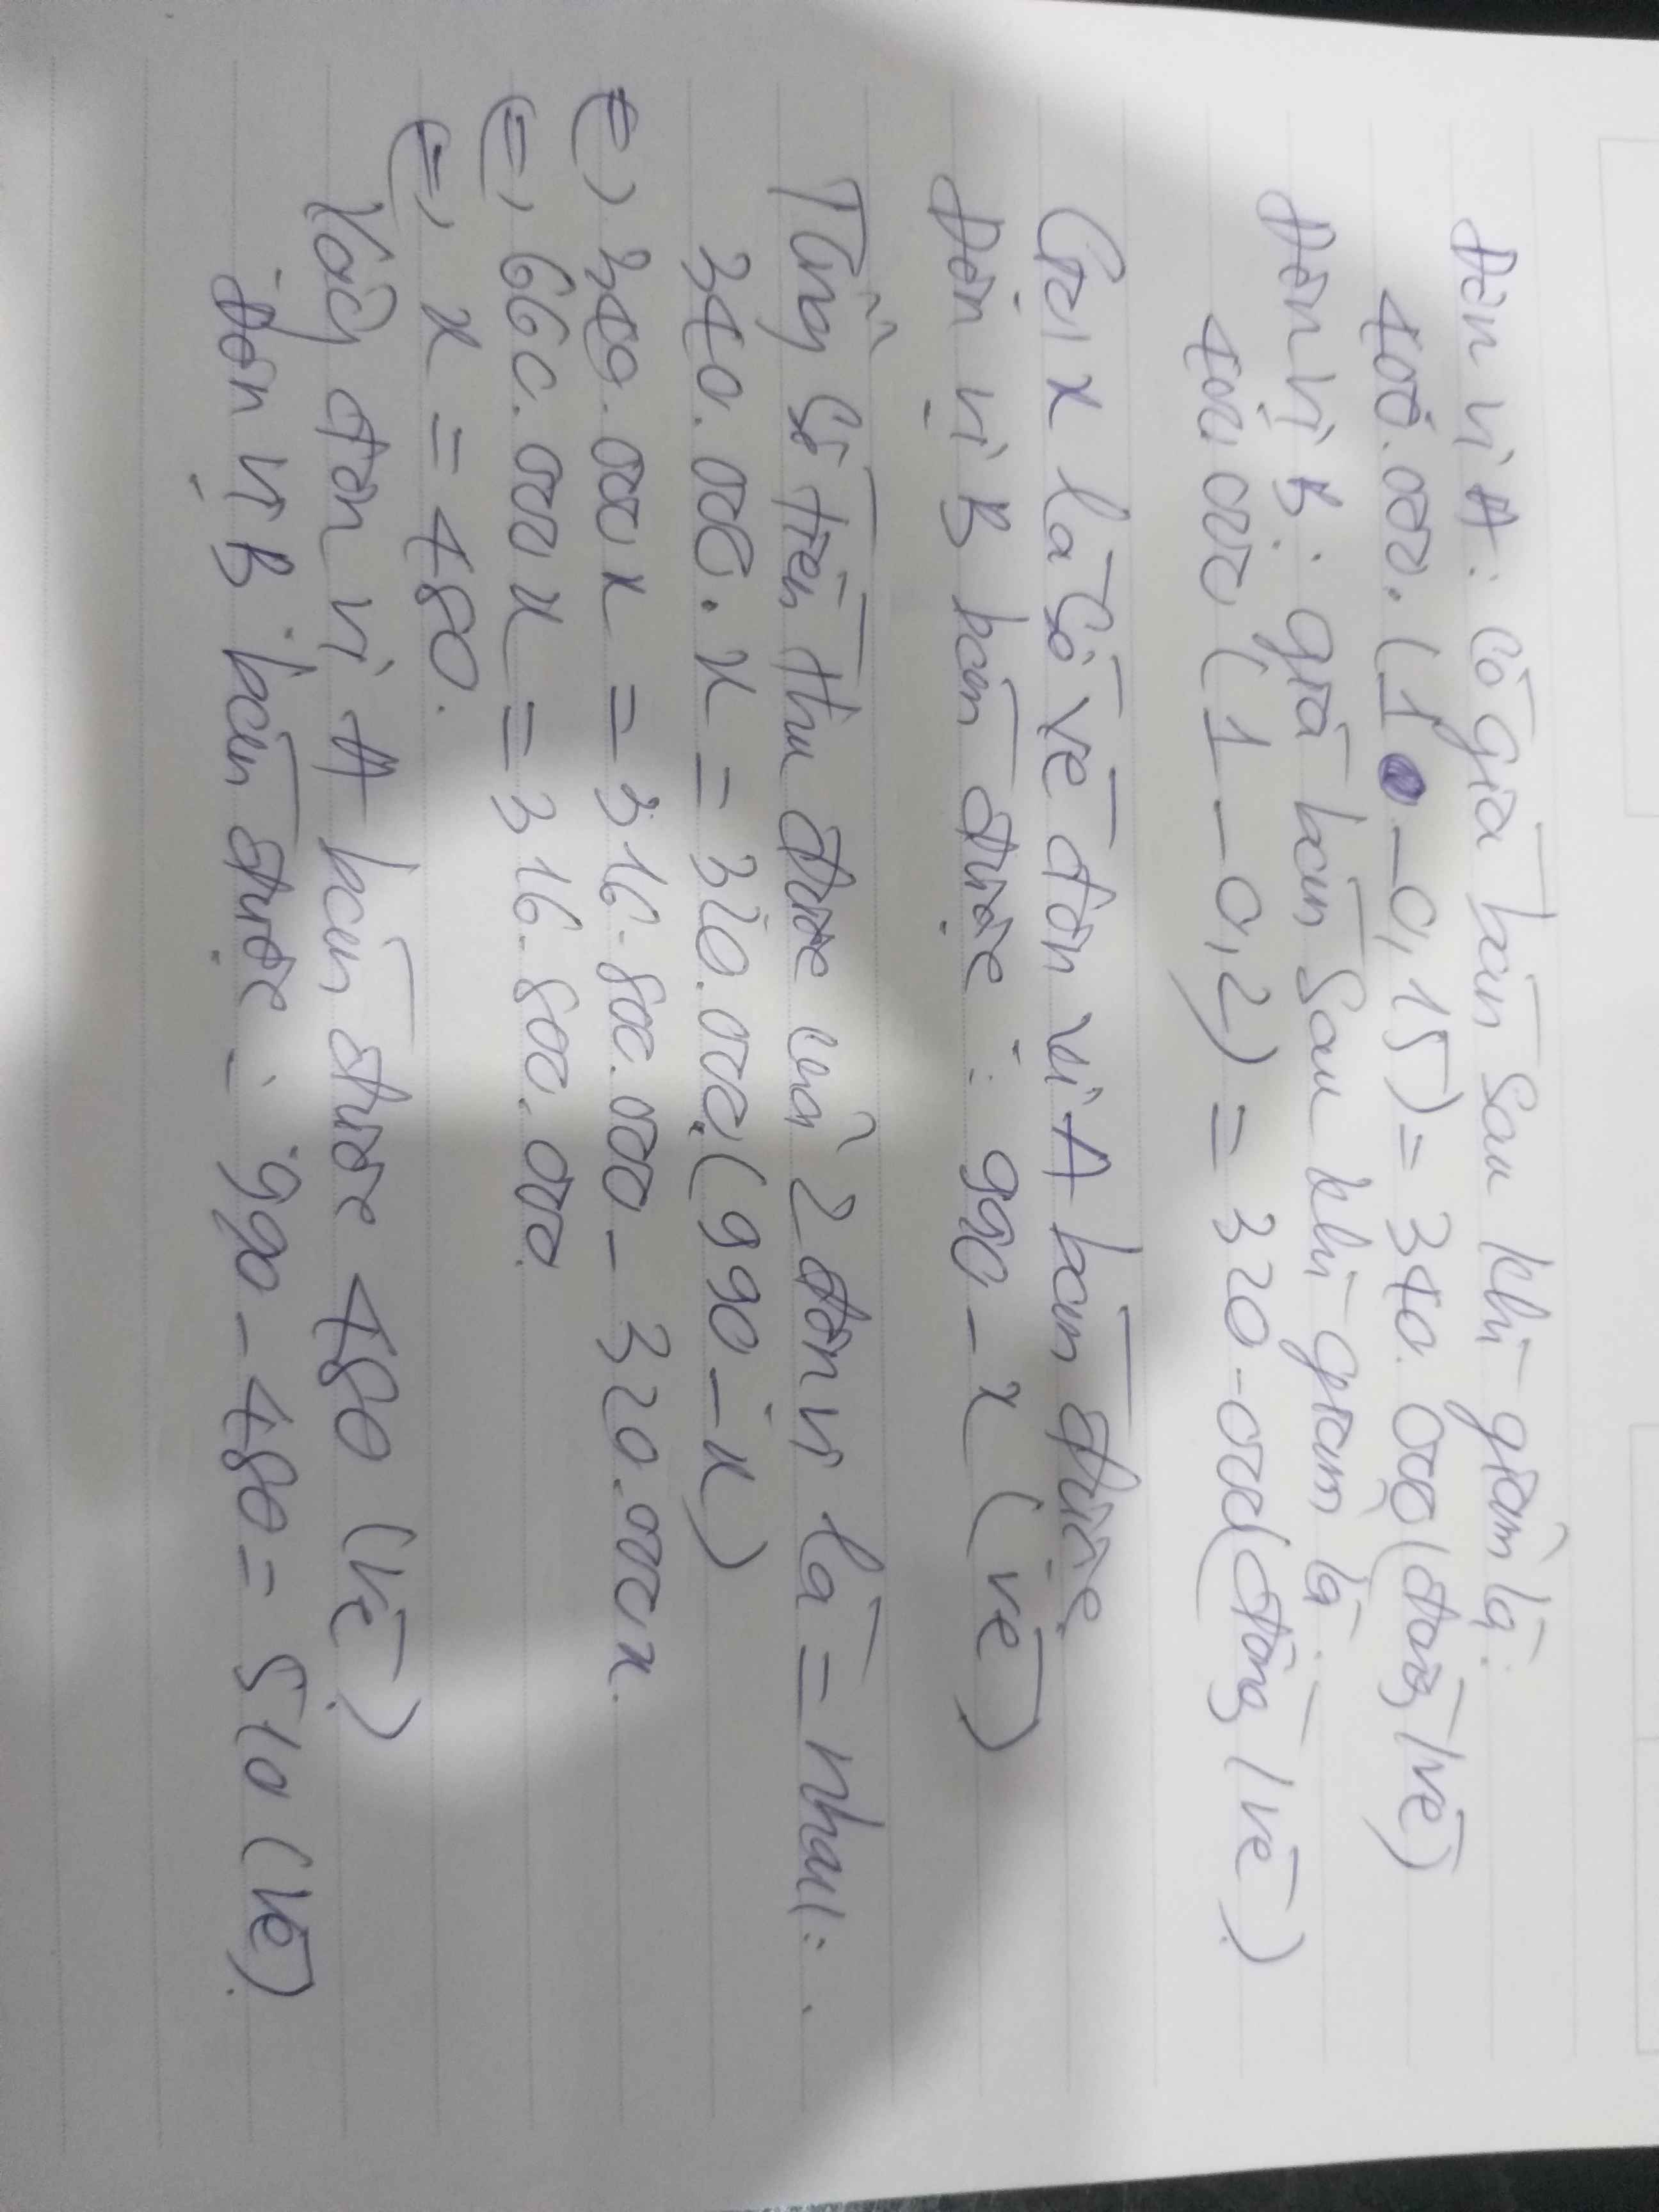 Đơn vị A: có giá bán sau khi giảm là:
400.000.(1 - 0,15) = 340.000 (đồng/vé)
Đơn vị B: giá bán sau khi giảm là:
400.000 (1 - 0,2) = 320.000 (đồng/vé)
Gọi x là số vé đơn vị A bán được
Đơn vị B bán được: 990 - x (vé)
Tổng số tiền thu được của 2 đơn vị là = nhau:
340.000.x = 320.000.(990 - x)
⇔ 340.000x = 316.800.000 - 320.000x
⇔ 660.000x = 316.800.000.
⇔ x = 480.
Vậy đơn vị A bán được 480 (vé)
Đơn vị B bán được: 990 - 480 = 510 (vé)